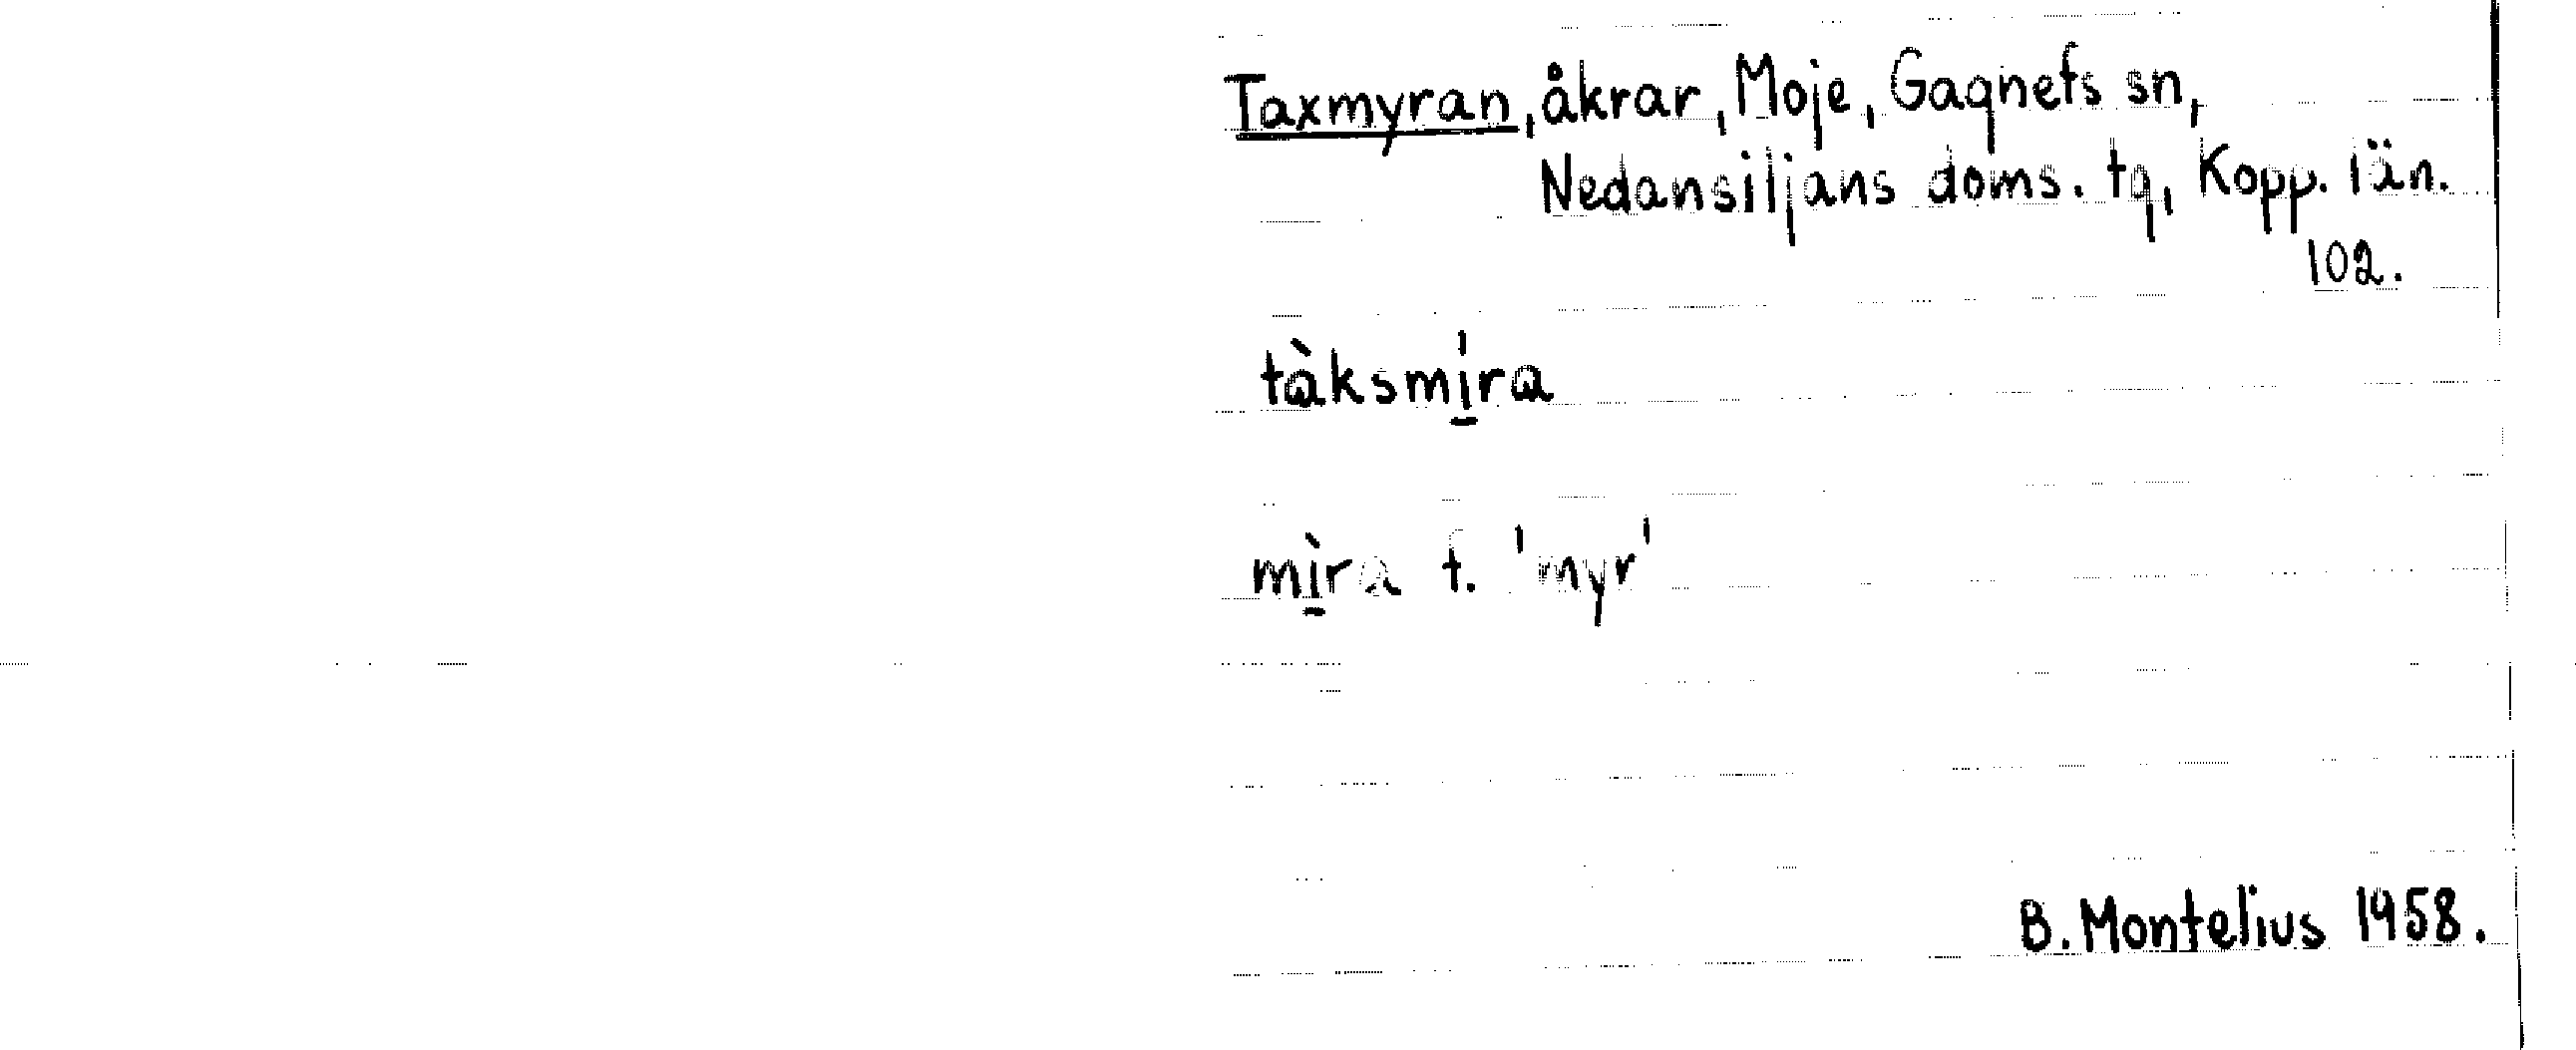 Taxmyran, åkrar, Moje, Gagnefs sn,
Nedansiljans doms. tg, Kopp. län.
102.
tàksmi̠ra
mì̠ra f. 'myr'
B. Montelius 1958.